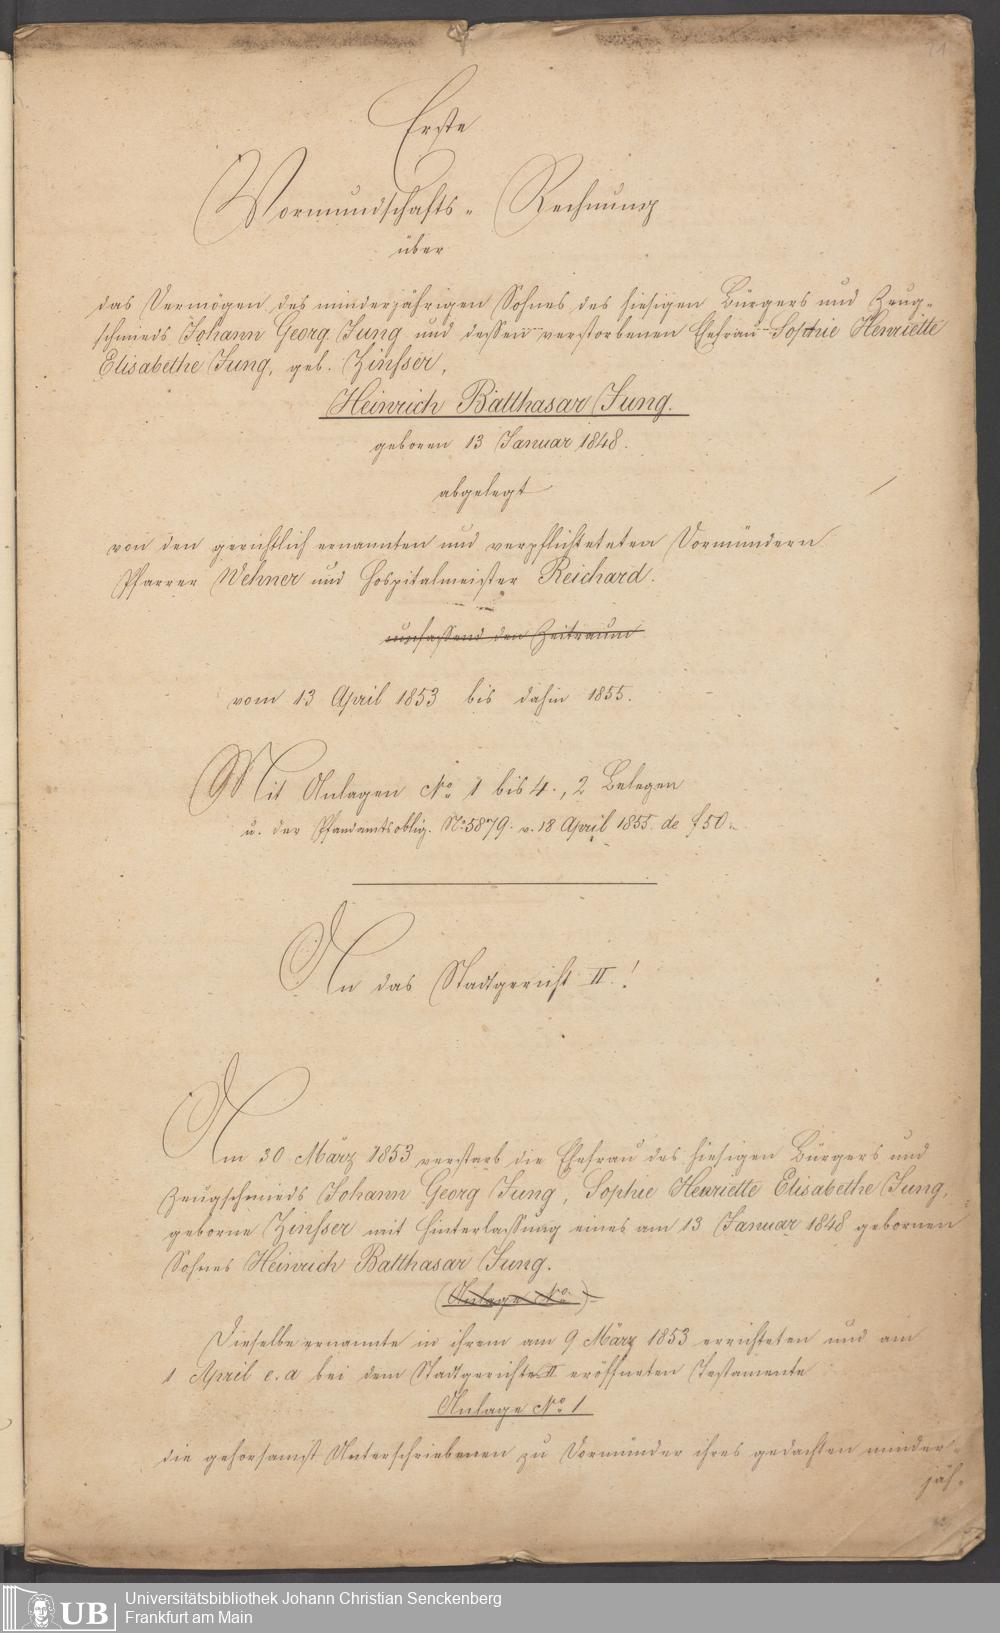 21
Erste
Vormundschafts- Rechnung
über
das Vermögen des minderjährigen Sohnes des hiesigen Bürgers und Zeug-
schmieds Johann Georg Jung und dessen verstorbenen Ehefrau Sophie Henriette
Elisabethe Jung, geb. Zinsser,
Heinrich Balthasar Jung.
geboren 13 Januar 1848.
abgelegt
von den gerichtlich ernannten und verpflichteten Vormündern
Pfarrer Wehner und Hospitalmeister Reichard.
umfassend den Zeitraum
vom 13 April 1853 bis dahin 1855.
Mit Anlagen No 1 bis 4., 2 Belegen
u. der Pfandamtsoblig. No 5879. v. 18 April 1855. de f 50.
An das Stadtgericht II.!
Am 30 März 1853 verstarb die Ehefrau des hiesigen Bürgers und
Zeugschmieds Johann Georg Jung, Sophie Henriette Elisabethe Jung,
geborne Zinsser mit Hinterlassung eines am 13 Januar 1848 gebornen
Sohnes Heinrich Balthasar Jung.
(Anlage No. )
Dieselbe ernannte in ihrem am 9 März 1853 errichteten und am
1 April e. a bei dem Stadtgerichte II eröffneten Testamente
Anlage No 1
die gehorsamst Unterschriebenen zu Vormünder ihres gedachten minder-
jäh-
Universitätsbibliothek Johann Christian Senckenberg
Frankfurt am Main
UB